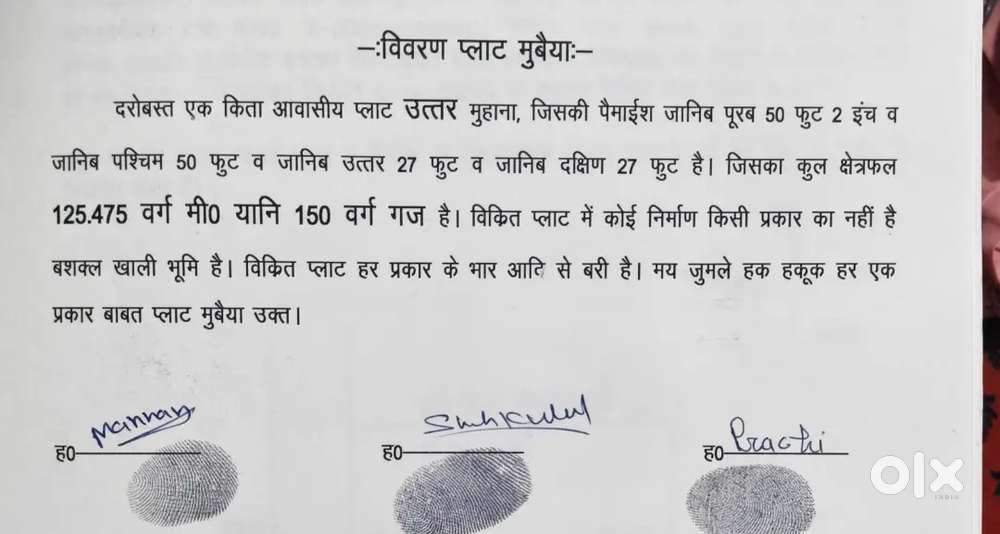 –:विवरण प्लाट मुबैयाः–
दरोबस्त एक किता आवासीय प्लाट उत्तर मुहाना, जिसकी पैमाईश जानिब पूरब 50 फुट 2 इंच व
जानिब पश्चिम 50 फुट व जानिब उत्तर 27 फुट व जानिब दक्षिण 27 फुट है। जिसका कुल क्षेत्रफल
125.475 वर्ग मी0 यानि 150 वर्ग गज है। विक्रित प्लाट में कोई निर्माण किसी प्रकार का नहीं है
बशक्ल खाली भूमि है। विक्रित प्लाट हर प्रकार के भार आदि से बरी है। मय जुमले हक हकूक हर एक
प्रकार बाबत प्लाट मुबैया उक्त।
ह0 ह0 ह0 Prachi
olx
INDIA